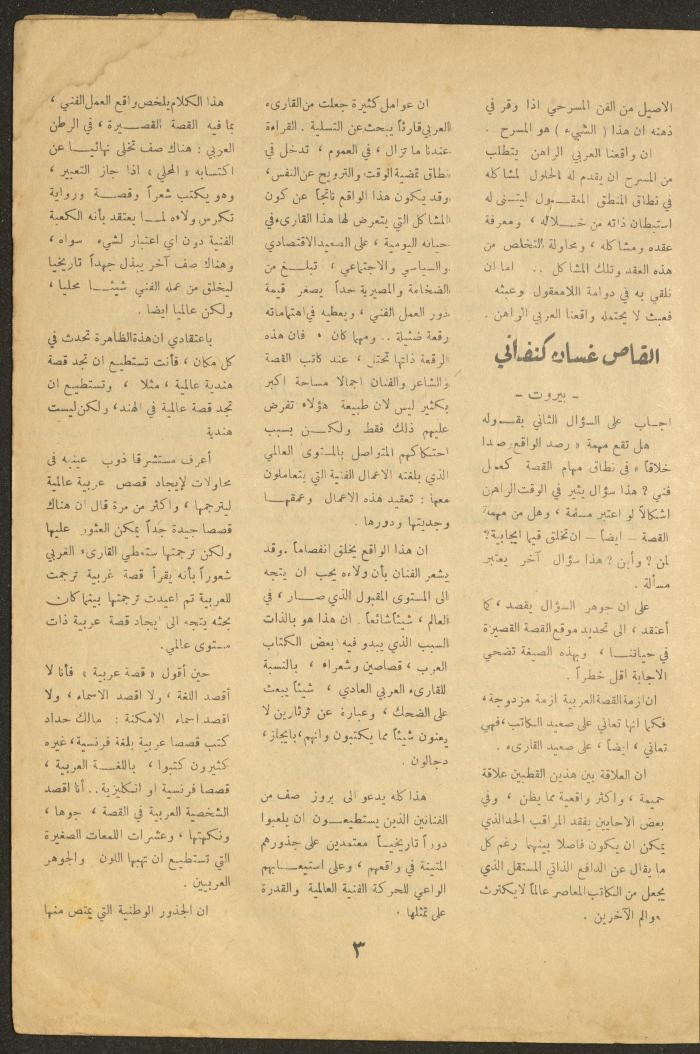 الاصيل من الفن المسرحي اذا وقر في
ذهنه ان هذا ( الشيء ) هو المسرح .
ان واقعنا العربي الراهن يتطلب
من المسرح ان يقدم له الحلول لمشاكله
في نطاق المنطق المعقبول ليتسنى له
استبطان ذاته من خلاله ، ومعرفة
عقده ومشاكله ، ومحاولة التخلص من
هذه العقد وتلك المشاكل .. اما ان
نلقي به في دوامة اللامعقول وعبثه
فعبث لا يحتمله واقعنا العربي الراهن .
القاص غسان كنفاني
- بيروت -
اجاب على السؤال الثاني بقوله
هل تقع مهمة « رصد الواقع رصدا
خلاقاً » في نطاق مهام القصة كعمل
فني ؟ هذا سؤال يثير في الوقت الراهن
اشكالاً لو اعتبر مسلمة ، وهل من مهمة
القصة - ايضاً - ان تخلق قيما ايجابية ؟
لمن ؟ وأين ؟ هذا سؤال آخر يعتبر
مسألة .
على ان جوهر السؤال يقصد ، كما
أعتقد ، الى تحديد موقع القصة القصيرة
في حياتنا ، وبهذه الصيغة تضحي
الاجابة أقل خطراً .
ان ازمة القصة العربية ازمة مزدوجة ،
فكما انها تعاني على صعيد الكاتب ، فهي
تعاني ، ايضاً ، على صعيد القارىء .
ان العلاقة بين هذين القطبين علاقة
حميمة ، واكثر واقعية مما يظن ، وفي
بعض الاحايين يفقد المراقب الحد الذي
يمكن ان يكون فاصلا بينهما رغم كل
ما يقال عن الدافع الذاتي المستقل الذي
يجعل من الكاتب المعاصر عالماً لا يكترث
بعوالم الآخرين .
ان عوامل كثيرة جعلت من القارىء
العربي قارئاً يبحث عن التسلية . القراءة
عندنا ما تزال ، في العموم ، تدخل في
نطاق تمضية الوقت والترويح عن النفس ،
وقد يكون هذا الواقع ناتجاً عن كون
المشاكل التي يتعرض لها هذا القارىء في
حياته اليومية ، على الصعيد الاقتصادي
والسياسي والاجتماعي ، تبلغ من
الضخامة والمصيرية حداً يصغر قيمة
دور العمل الفني ، ويعطيه في اهتماماته
رقعة ضئيلة .. ومهما كان ، فان هذه
الرقعة ذاتها تحتل ، عند كاتب القصة
والشاعر والفنان اجمالا مساحة اكبر
بكثير ليس لان طبيعة هؤلاء تفرض
عليهم ذلك فقط ولكن بسبب
احتكاكهم المتواصل بالمستوى العالمي
الذي بلغته الاعمال الفنية التي يتعاملون
معها : تعقيد هذه الاعمال وعمقها
وجديتها ودورها .
ان هذا الواقع يخلق انفصاماً . وقد
يشعر الفنان بأن ولاءه يجب ان يتجه
الى المستوى المقبول الذي صار ، في
العالم ، شيئاً شائعاً . ان هذا هو بالذات
السبب الذي يبدو فيه بعض الكتاب
العرب ، قصاصين وشعراء ، بالنسبة
للقارىء العربي العادي ، شيئاً يبعث
على الضحك ، وعبارة عن ثرثارين لا
يعنون شيئاً مما يكتبون وانهم ، بايجاز ،
دجالون .
هذا كله يدعو الى بروز صف من
الفنانين الذين يستطيعون ان يلعبوا
دوراً تاريخيا معتمدين على جذورهم
المتينة في واقعهم ، وعلى استيعابهم
الواعي للحركة الفنية العالمية والقدرة
على تمثلها .
هذا الكلام يلخص واقع العمل الفني ،
بما فيه القصة القصيرة ، في الوطن
العربي : هناك صف تخلى نهائيا عن
اكتسابه « المحلي » اذا جاز التعبير ،
وهو يكتب شعراً وقصة ورواية
تكرس ولاءه لما يعتقد بأنه الكعبة
الفنية دون اي اعتبار لشيء سواه ،
وهناك صف آخر يبذل جهداً تاريخيا
ليخلق من عمله الفني شيئا محليا ،
ولكن عالميا ايضا .
باعتقادي ان هذة الظاهرة تحدث في
كل مكان ، فأنت تستطيع ان تجد قصة
هندية عالمية ، مثلا ، وتستطيع ان
تجد قصة عالمية في الهند ، ولكن ليست
هندية
أعرف مستشرقا ذوب عينيه في
محاولات لإيجاد قصص عربية عالمية
ليترجمها ، واكثر من مرة قال ان هناك
قصصا جيدة جداً يمكن العثور عليها
ولكن ترجمتها ستعطي القارىء الغربي
شعوراً بأنه يقرأ قصة غربية ترجمت
للعربية ثم اعيدت ترجمتها بينما كان
بحثه يتجه الى ايجاد قصة عربية ذات
مستوى عالمي .
حين أقول « قصة عربية » فأنا لا
أقصد اللغة ، ولا اقصد الاسماء ، ولا
اقصد اسماء الامكنة : مالك حداد
كتب قصصا عربية بلغة فرنسية ، غيره
كثيرون كتبوا ، باللغة العربية ،
قصصا فرنسية او انكليزية .. أنا اقصد
الشخصية العربية في القصة ، جوها ،
ونكهتها ، وعشرات اللمعات الصغيرة
التي تستطيع ان تهبها اللون والجوهر
العربيين .
ان الجذور الوطنية التي يمتص منها
٣